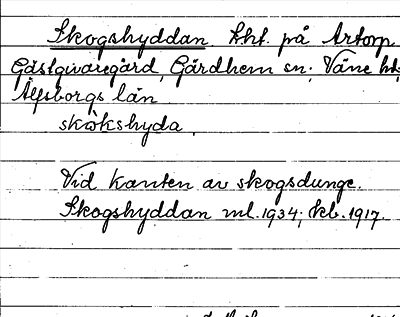 Skogshyddan. Lht. på Artorp
Gästgivaregård, Gärdhem sn; Väne hd;
Älfsborgs län.
skòkshyda.
Vid kanten av skogsdunge.
Skogshyddan ml. 1934; kb. 1917.